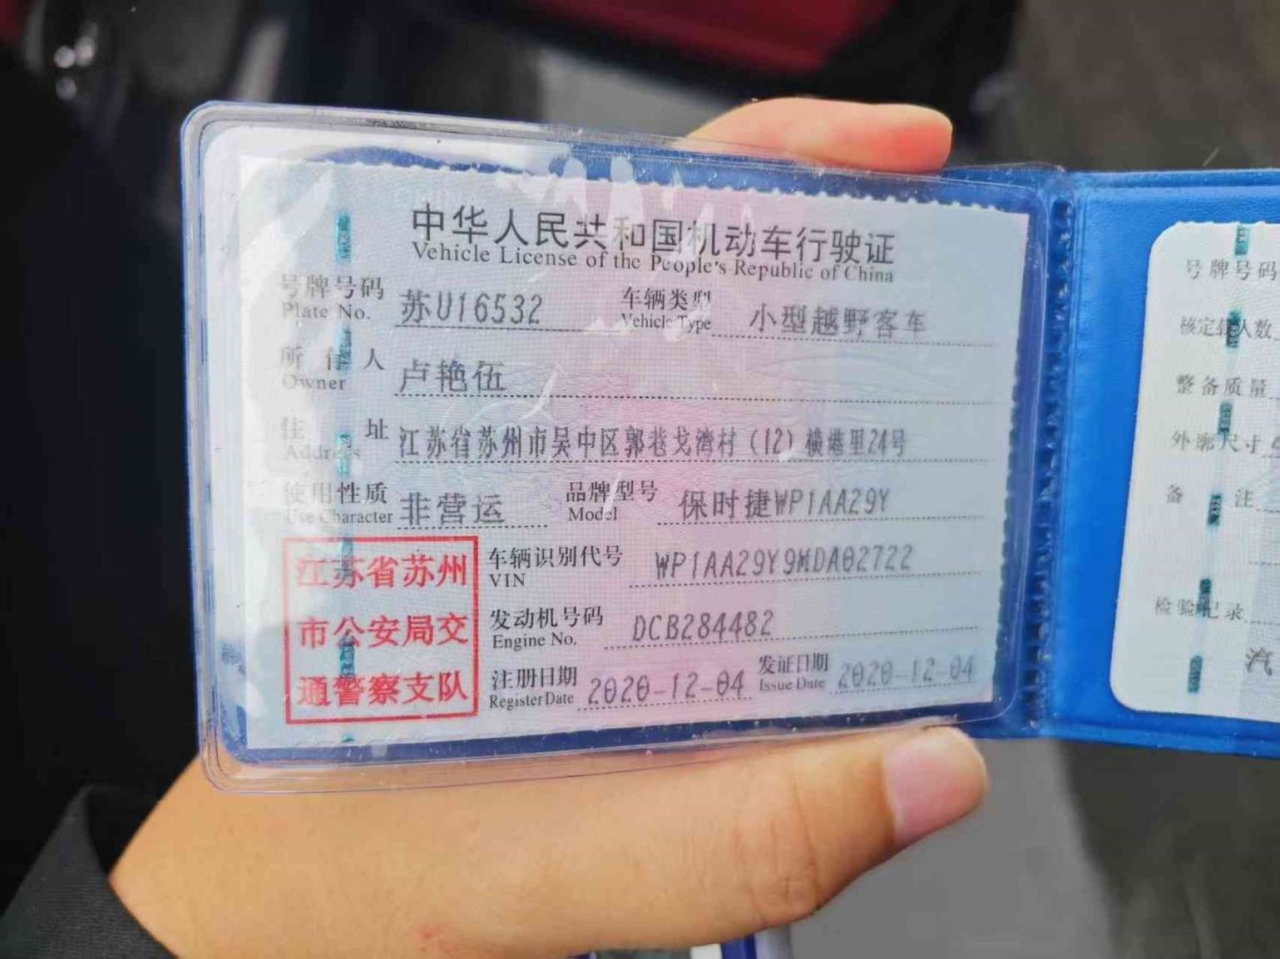 中华人民共和国机动车行驶证
Vehicle License of the People's Republic of China
号牌号码 苏U16532 车辆类型 小型越野客车
Plate No. Vehicle Type
所有人 卢艳伍
Owner
住址 江苏省苏州市吴中区郭巷戈湾村(12)横港里24号
Address
使用性质 非营运 品牌型号 保时捷WP1AA29Y
Use Character Model
江苏省苏州
市公安局交
通警察支队
车辆识别代号 WP1AA29Y9MDA02722
VIN
发动机号码 DCB284482
Engine No.
注册日期 2020-12-04 发证日期 2020-12-04
Register Date Issue Date
号牌号码
核定载人数
整备质量
外廓尺寸
备注
检验记录
汽